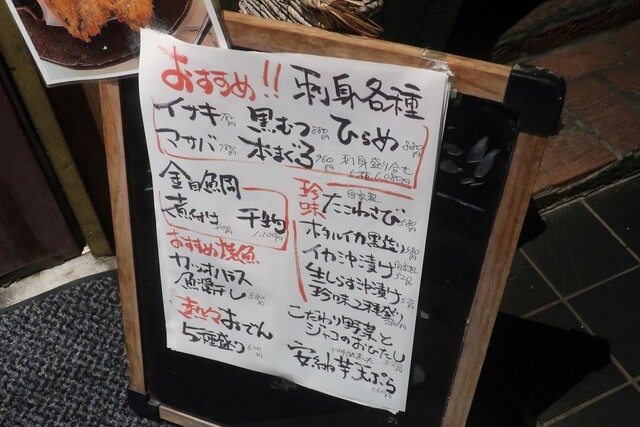 おすすめ!! 刺身各種
イサキ 黒むつ 880円 ひらめ 880円
マサバ 780円 本まぐろ 960円 刺身盛り合せ
1,080円
金目鯛
煮付け 干物
1,100円
おすすめ焼魚
カツオハラス
魚醤干し 580円
おでん
5種盛り 620円
珍味
自家製
たこわさび
ホタルイカ黒造り
イカ沖漬け 520円
生しらす沖漬け
珍味2種盛り
こだわり野菜と
ジャコのおひたし
安納芋天ぷら